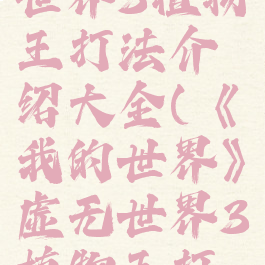 世界3植物
王打法介
绍大全(《
我的世界》
虚无世界3
植物王打